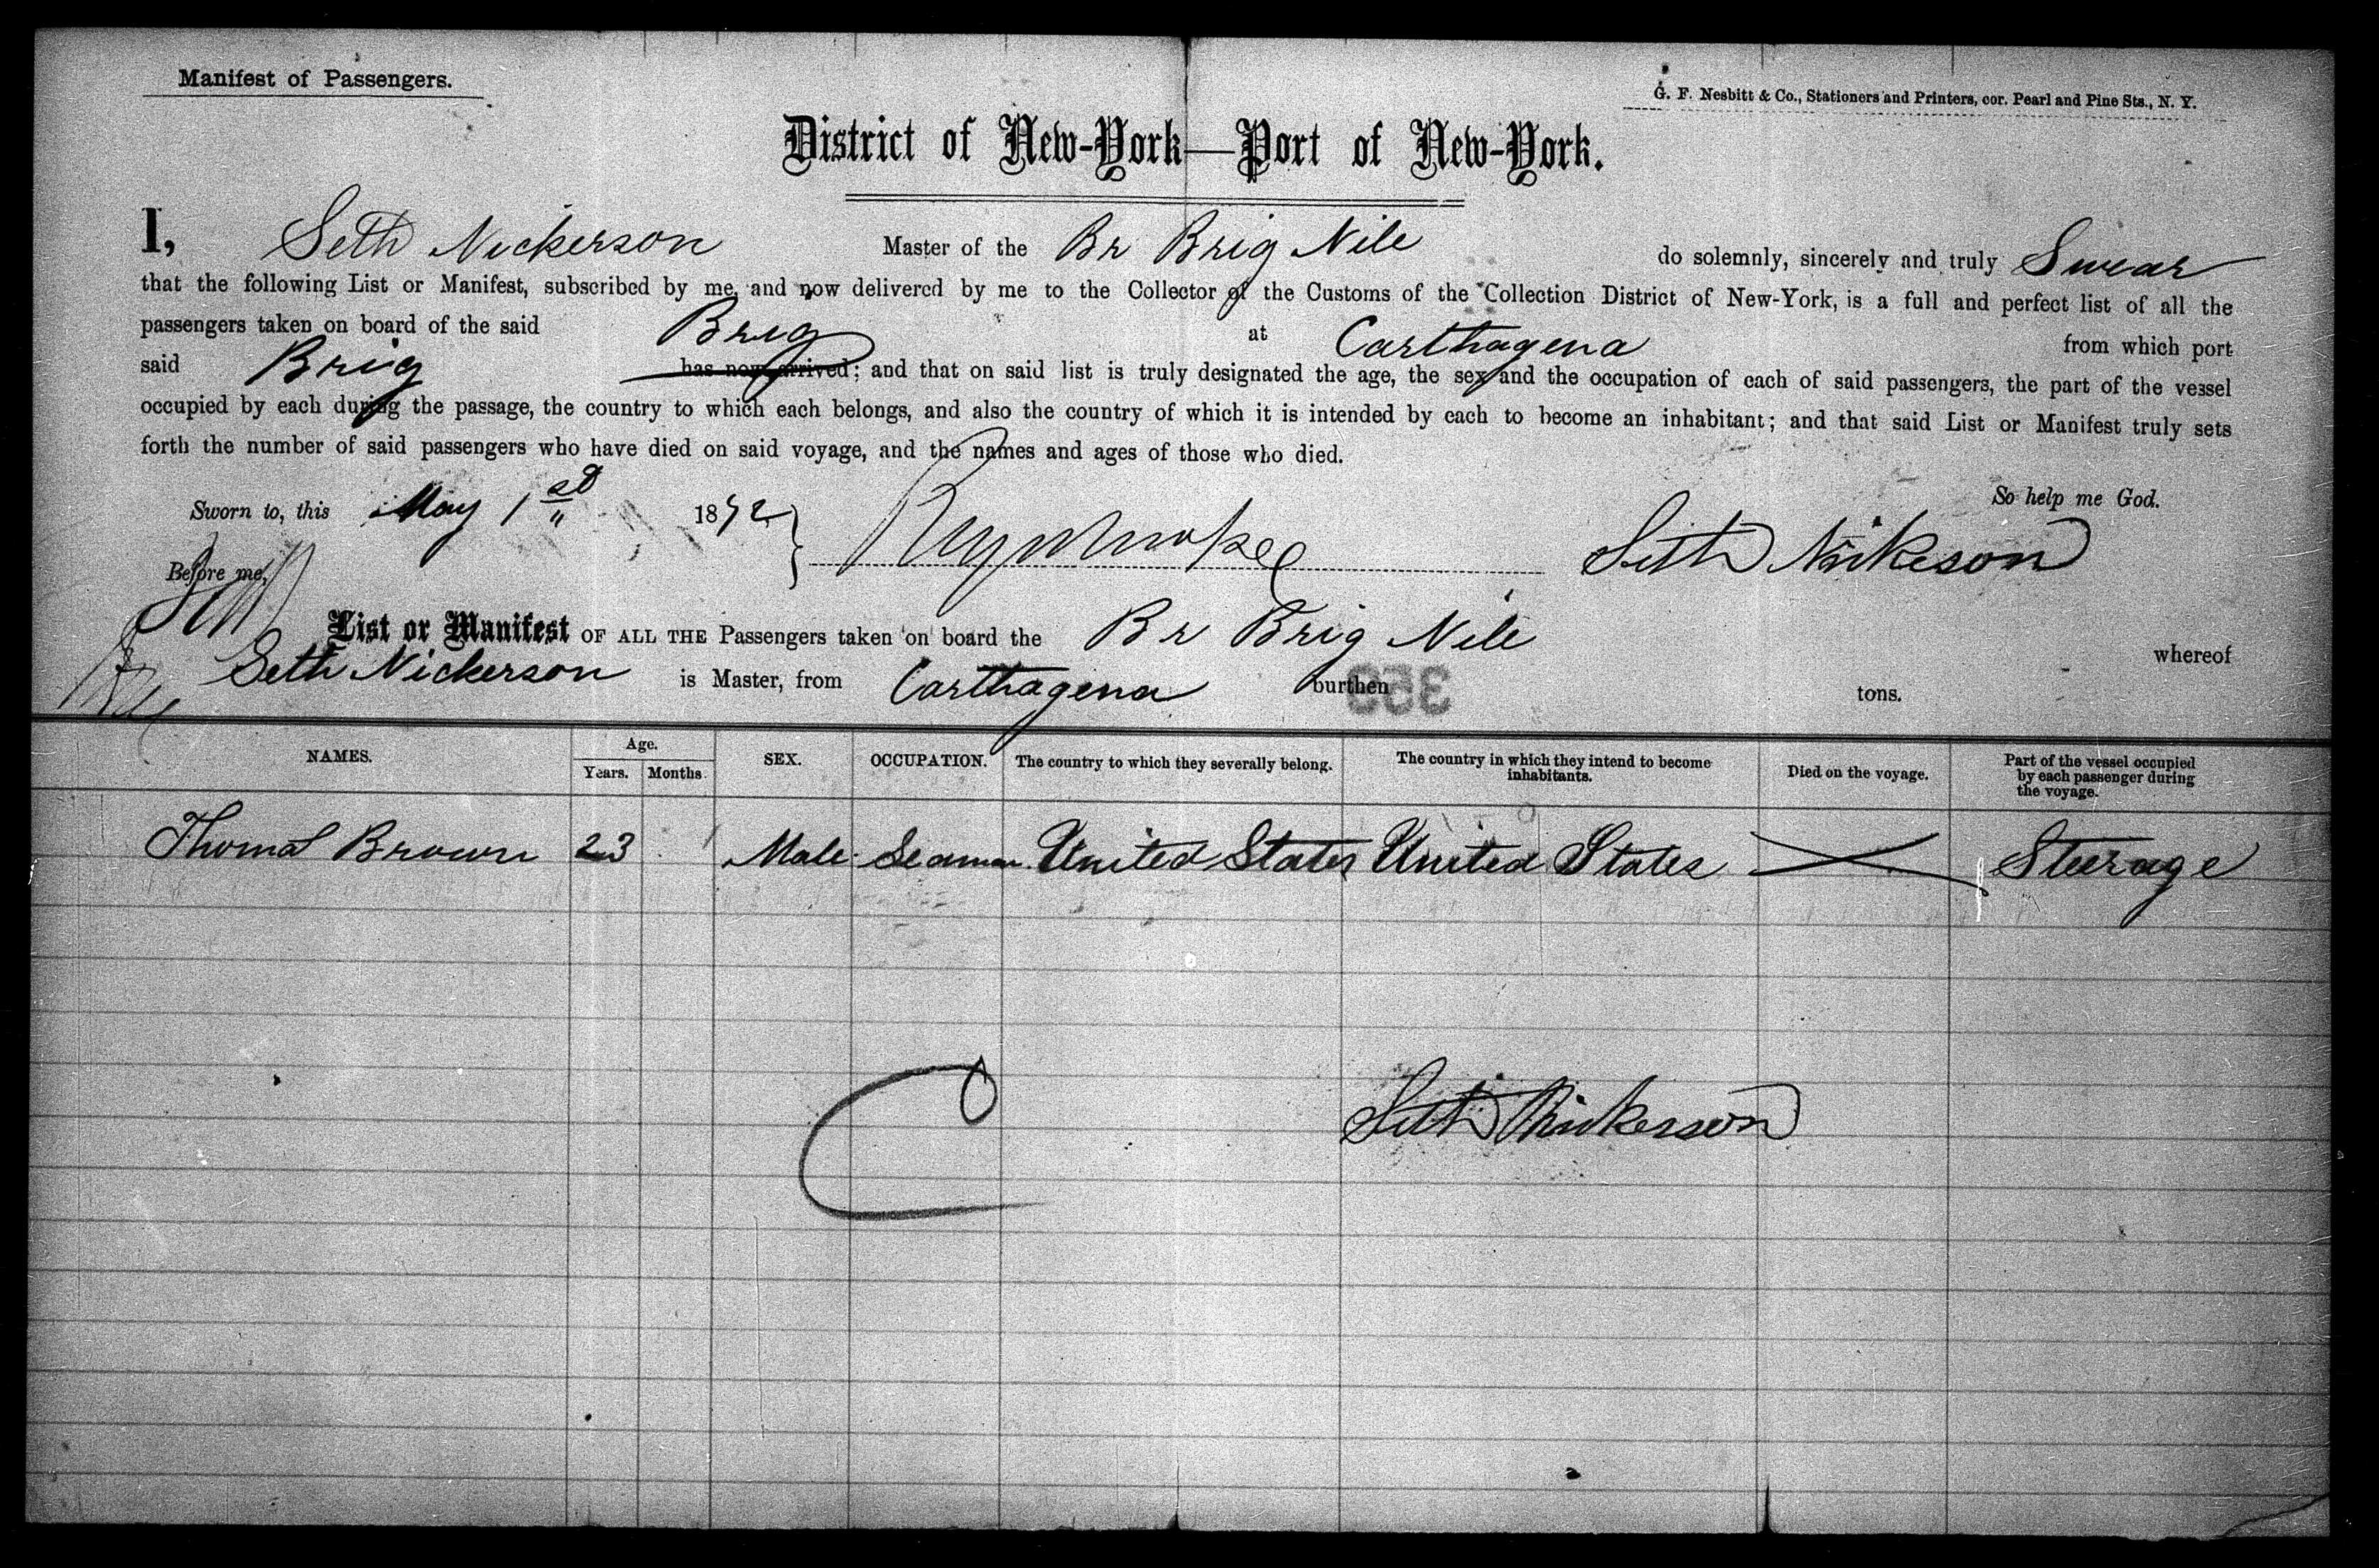 Manifest of Passengers.
G. F. Nesbitt & Co., Stationers and Printers, cor. Pearl and Pine Sts., N. Y.
District of New-York—Port of New-York.
I, Seth Nickerson Master of the Br Brig Nile do solemnly, sincerely and truly Swear
that the following List or Manifest, subscribed by me, and now delivered by me to the Collector of the Customs of the Collection District of New-York, is a full and perfect list of all the
passengers taken on board of the said Brig at Carthagena from which port
said Brig has now arrived; and that on said list is truly designated the age, the sex and the occupation of each of said passengers, the part of the vessel
occupied by each during the passage, the country to which each belongs, and also the country of which it is intended by each to become an inhabitant; and that said List or Manifest truly sets
forth the number of said passengers who have died on said voyage, and the names and ages of those who died.
So help me God.
Sworn to, this May 1st 1872
Seth Nickerson
Before me,
List or Manifest OF ALL THE Passengers taken on board the Br Brig Nile whereof
Seth Nickerson is Master, from Carthagena burthen tons.
353
NAMES. Age. Years. Months. SEX. OCCUPATION. The country to which they severally belong. The country in which they intend to become inhabitants. Died on the voyage. Part of the vessel occupied by each passenger during the voyage.
Thomas Brown 23 Male Seaman United States United States Steerage
Seth Nickerson